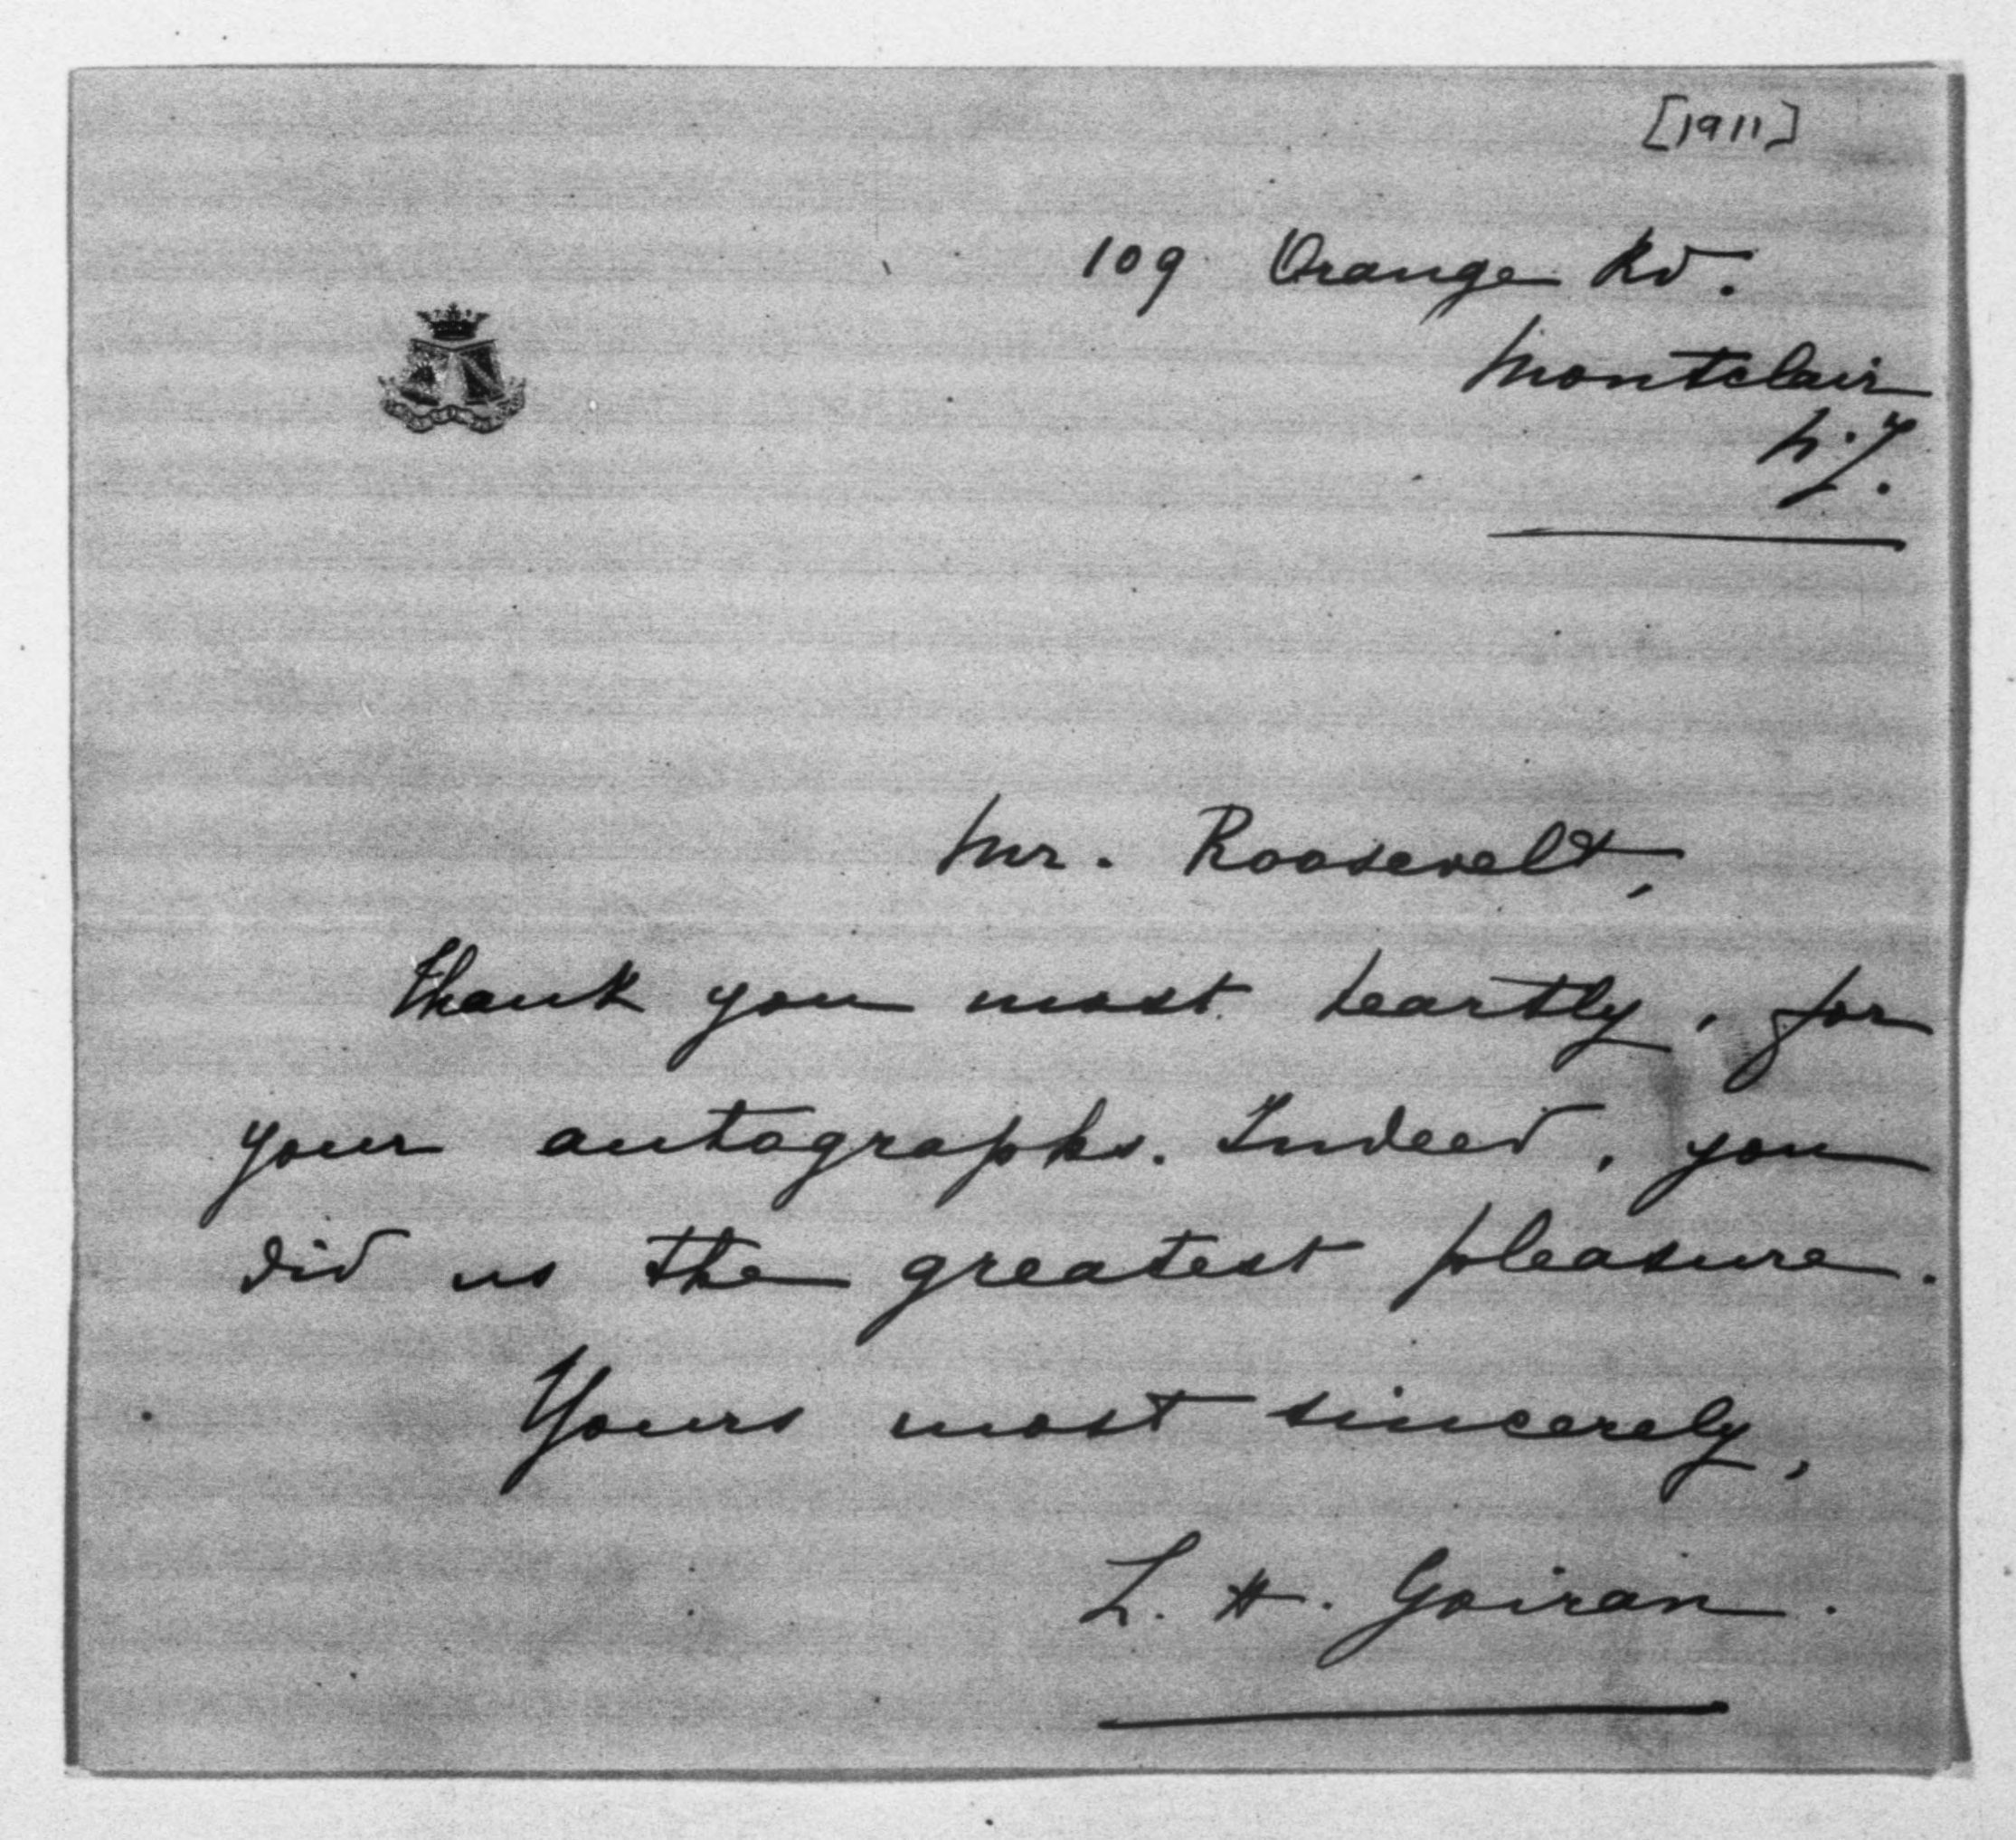 [1911]
109 Orange Rd.
Montclair
N.J.
Mr. Roosevelt,
Thank you most heartly, for
your autographs. Indeed, you
did us the greatest pleasure.
Yours most sincerely,
L. H. Goiran.